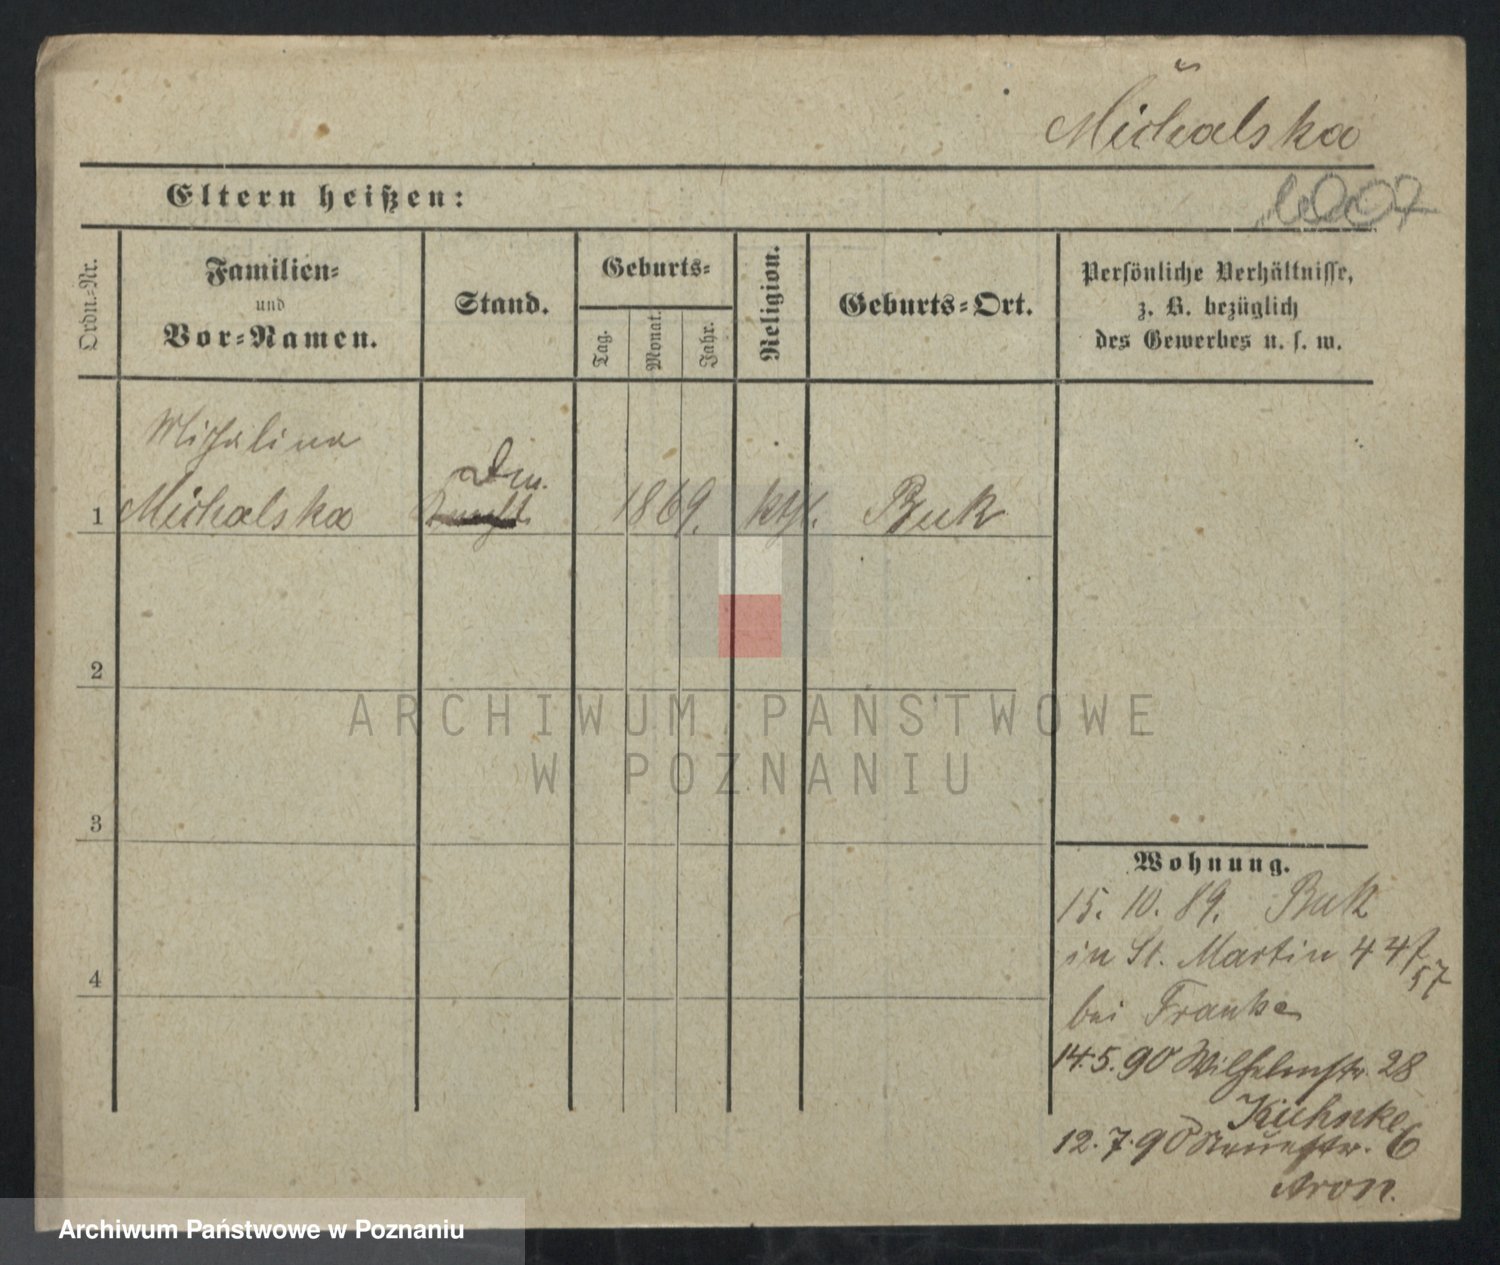 Michalska
Eltern heißen:
Ordn.-Nr.
Familien-
und
Vor-Namen.
Stand.
Geburts-
Tag.
Monat.
Jahr.
Religion.
Geburts-Ort.
Persönliche Verhältnisse,
z. B. bezüglich
des Gewerbes u. s. w.
Michalina
1 Michalska 1869. kth. Buk
2
3
4
Wohnung.
15. 10. 89. Buk
in St. Martin 4 47/57
bei Franke
14.5.90 Wilhelmstr. 28
Kuhnke
12.7.90 Neuestr. 6
Aron.
ARCHIWUM PAŃSTWOWE
W POZNANIU
Archiwum Państwowe w Poznaniu